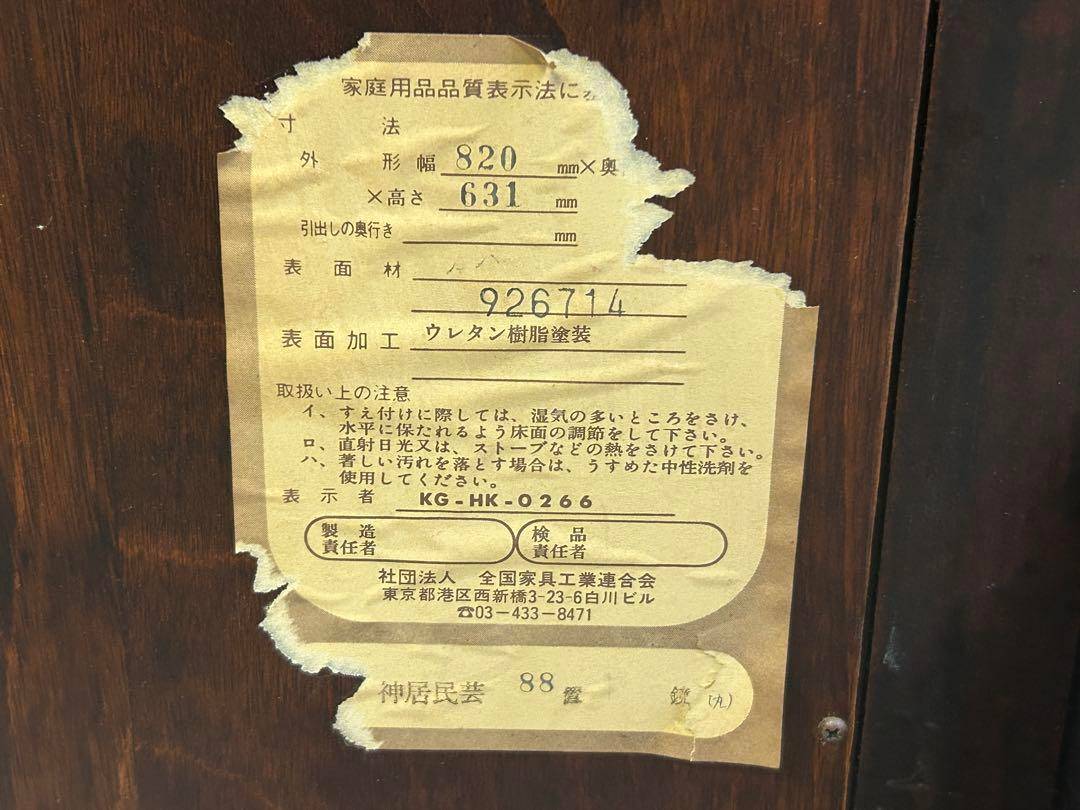 家庭用品品質表示法に
寸 法
外 形 幅 820 mm×奥
×高さ 631 mm
引出しの奥行き mm
表 面 材
926714
表面加工 ウレタン樹脂塗装
取扱い上の注意
イ、すえ付けに際しては、湿気の多いところをさけ、
水平に保たれるよう床面の調節をして下さい。
ロ、直射日光又は、ストーブなどの熱をさけて下さい。
ハ、著しい汚れを落とす場合は、うすめた中性洗剤を
使用してください。
表 示 者 KG-HK-0266
製 造 検 品
責任者 責任者
社団法人 全国家具工業連合会
東京都港区西新橋3-23-6白川ビル
☎03-433-8471
神居民芸 88 (九)